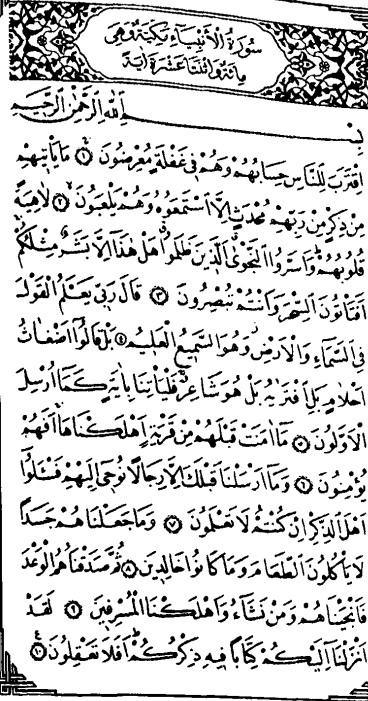 سُورَةُ الْأَنْبِيَاءِ مَكِّيَّةٌ وَهِيَ
مِائَةٌ وَاثْنَتَا عَشْرَةَ اٰيَةً
بِسْمِ اللّٰهِ الرَّحْمٰنِ الرَّحِيمِ
اِقْتَرَبَ لِلنَّاسِ حِسَابُهُمْ وَهُمْ فِي غَفْلَةٍ مُعْرِضُونَ ۝١ مَا يَأْتِيهِمْ
مِنْ ذِكْرٍ مِنْ رَبِّهِمْ مُحْدَثٍ اِلَّا اسْتَمَعُوهُ وَهُمْ يَلْعَبُونَ ۝٢ لَاهِيَةً
قُلُوبُهُمْ وَاَسَرُّوا النَّجْوٰى الَّذِينَ ظَلَمُوا هَلْ هٰذَا اِلَّا بَشَرٌ مِثْلُكُمْ
اَفَتَأْتُونَ السِّحْرَ وَاَنْتُمْ تُبْصِرُونَ ۝٣ قَالَ رَبِّي يَعْلَمُ الْقَوْلَ
فِي السَّمَاءِ وَالْاَرْضِ وَهُوَ السَّمِيعُ الْعَلِيمُ ۝٤ بَلْ قَالُوا اَضْغَاثُ
اَحْلَامٍ بَلِ افْتَرٰيهُ بَلْ هُوَ شَاعِرٌ فَلْيَأْتِنَا بِاٰيَةٍ كَمَا اُرْسِلَ
الْاَوَّلُونَ ۝٥ مَا اٰمَنَتْ قَبْلَهُمْ مِنْ قَرْيَةٍ اَهْلَكْنَاهَا اَفَهُمْ
يُؤْمِنُونَ ۝٦ وَمَا اَرْسَلْنَا قَبْلَكَ اِلَّا رِجَالًا نُوحِي اِلَيْهِمْ فَسْـَٔلُوا
اَهْلَ الذِّكْرِ اِنْ كُنْتُمْ لَا تَعْلَمُونَ ۝٧ وَمَا جَعَلْنَاهُمْ جَسَدًا
لَا يَأْكُلُونَ الطَّعَامَ وَمَا كَانُوا خَالِدِينَ ۝٨ ثُمَّ صَدَقْنَاهُمُ الْوَعْدَ
فَاَنْجَيْنَاهُمْ وَمَنْ نَشَاءُ وَاَهْلَكْنَا الْمُسْرِفِينَ ۝٩ لَقَدْ
اَنْزَلْنَا اِلَيْكُمْ كِتَابًا فِيهِ ذِكْرُكُمْ اَفَلَا تَعْقِلُونَ ۝١٠